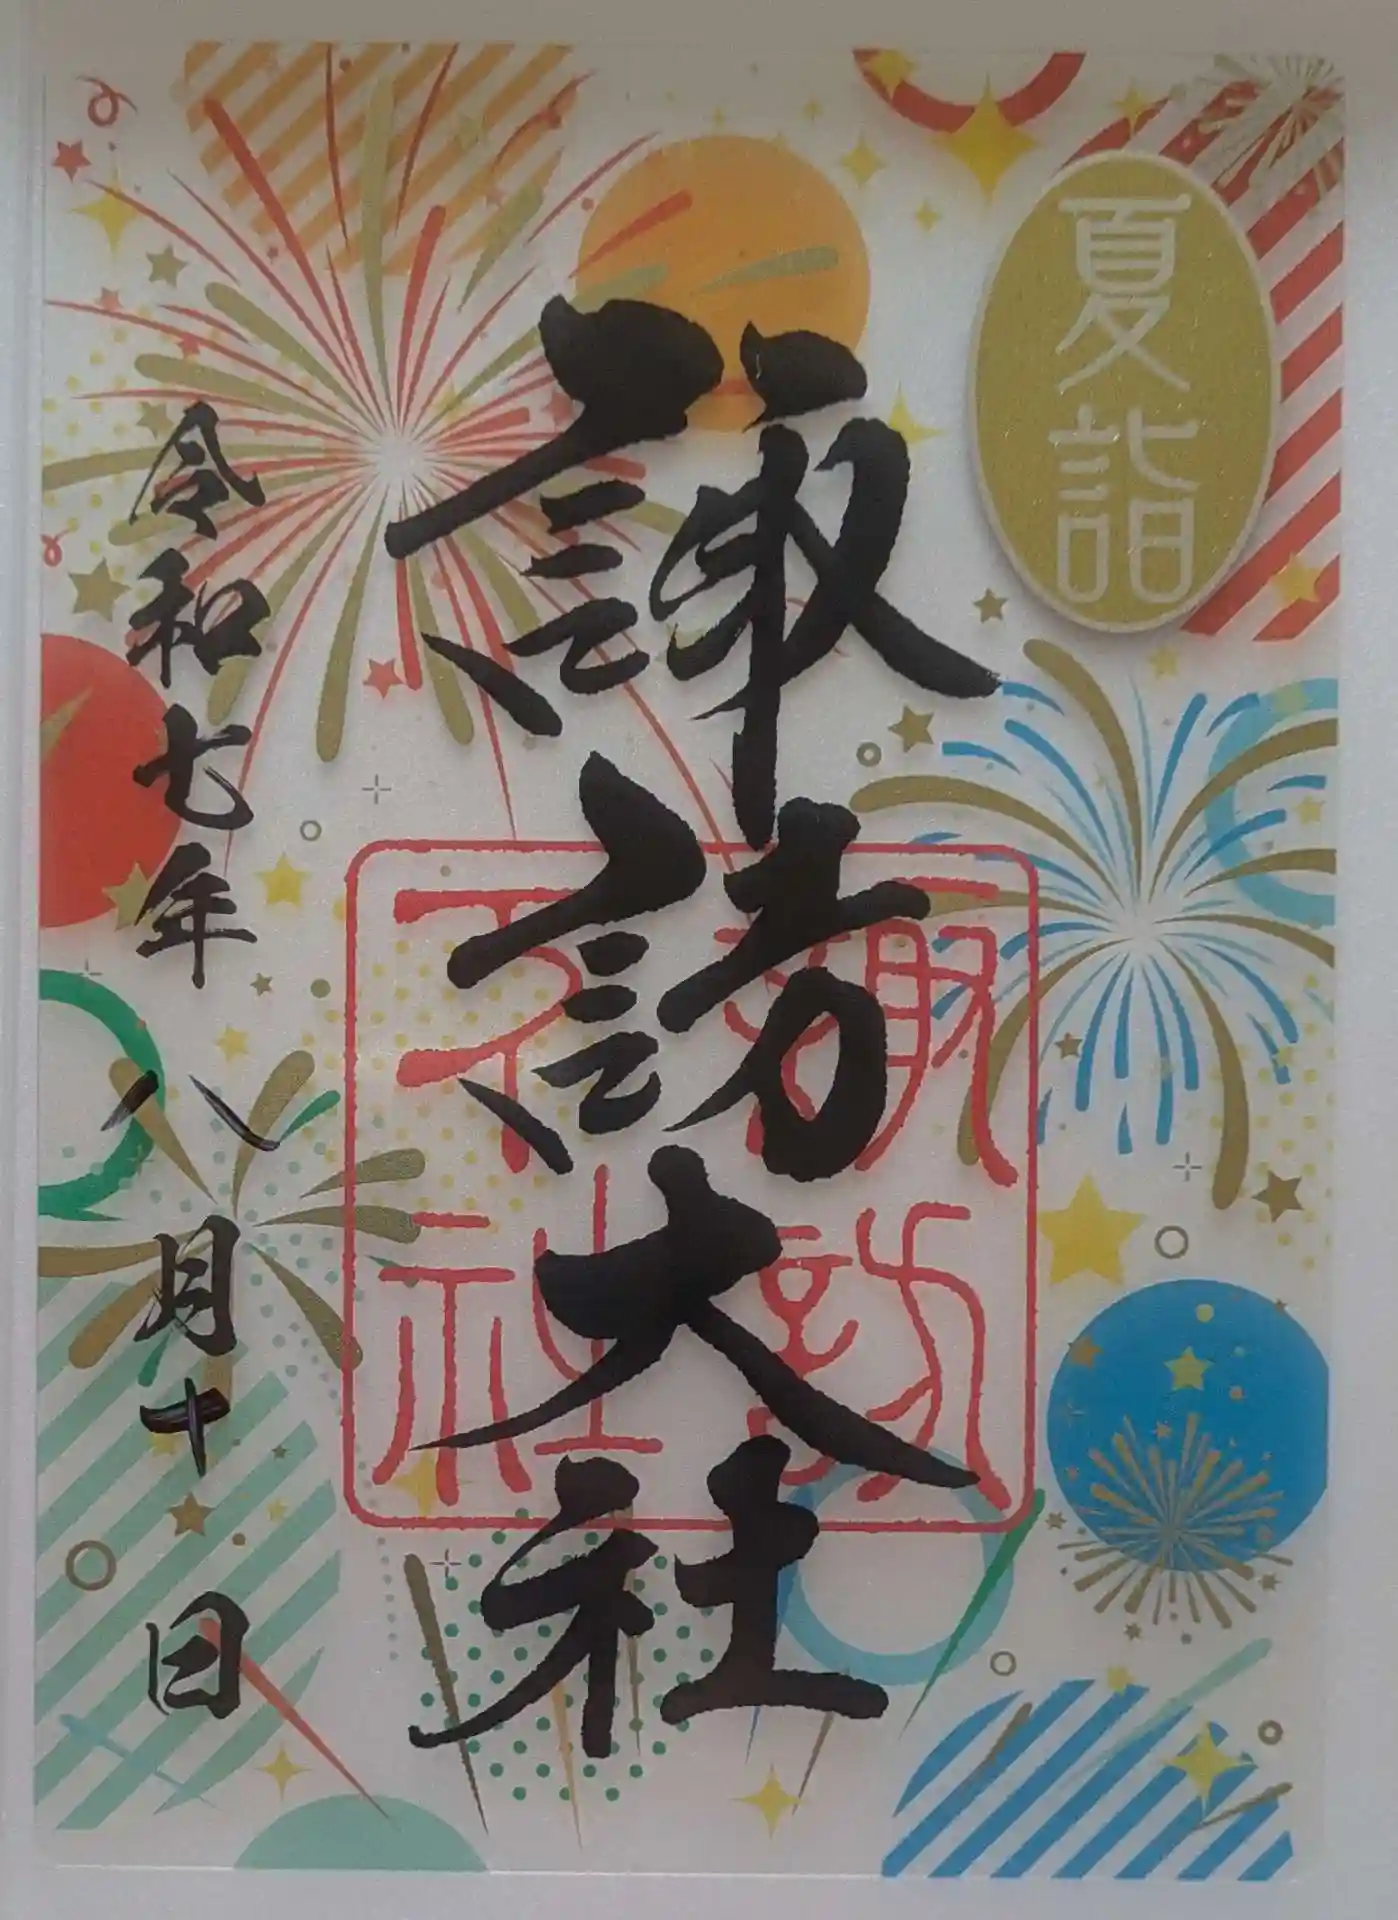 夏詣
諏訪大社
諏訪
大社
令和七年八月十日